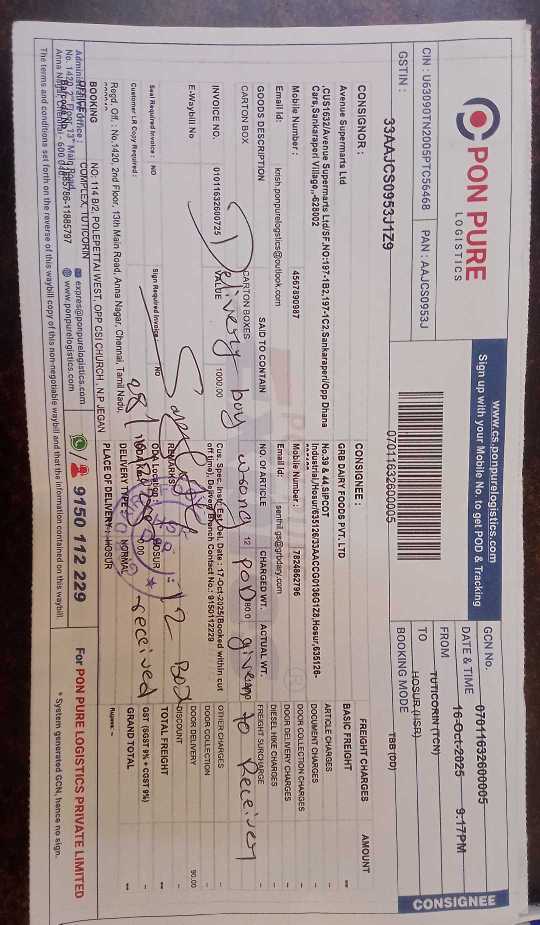 PON PURE
LOGISTICS
www.cs.ponpurelogistics.com
Sign up with your Mobile No. to get POD & Tracking
CONSIGNEE
CIN : U63090TN2005PTC56468 PAN : AAJCS0953J
GSTIN : 33AAJCS0953J1Z9
07011632600005
GCN No. 07011632600005
DATE & TIME 16-Oct-2025 9:17PM
FROM TUTICORIN (TCN)
TO HOSUR (HSR)
BOOKING MODE TBB (DD)
CONSIGNOR :
Avenue Supermarts Ltd
,CUS1632/Avenue Supermarts Ltd/SF,NO:197-1B2,197-1C2,Sankaraperi/Opp Dhana
Cars,Sankaraperi Village,,-628002
Mobile Number : 4567890987
Email Id: krish.ponpurelogistics@outlook.com
CONSIGNEE :
GRB DAIRY FOODS PVT. LTD
No.39 & 44,SIPCOT
Industrial,Hosur/635126/33AACCG0136G1Z8,Hosur,635126-
Mobile Number : 7824862796
Email Id: senthil.gs@grbdairy.com
GOODS DESCRIPTION SAID TO CONTAIN NO. OF ARTICLE CHARGED WT. ACTUAL WT.
CARTON BOX CARTON BOXES 12
INVOICE NO. 01011632600725 VALUE 1000.00
E-Waybill No
Cus. Spec. Instr: Est.Del. Date : 17-Oct-2025(Booked within cut
off time) Delivery Branch Contact No.: 9150112229
Delivery boy wrong POD given to Receiver
REMARKS
12 Box received
Seal Required Invoice : NO Sign Required Invoice : NO
Customer LR Copy Required :
ODA Location : HOSUR
DELIVERY TYPE : NORMAL
Regd. Off. : No.1420, 2nd Floor, 13th Main Road, Anna Nagar, Chennai, Tamil Nadu,
BOOKING NO. 114 B/2, POLEPETTAI WEST, OPP CSI CHURCH, N.P. JEGAN
COMPLEX, TUTICORIN
PLACE OF DELIVERY : HOSUR
FREIGHT CHARGES AMOUNT
BASIC FREIGHT --
ARTICLE CHARGES
DOCUMENT CHARGES
DOOR COLLECTION CHARGES
DOOR DELIVERY CHARGES
DIESEL HIKE CHARGES
FREIGHT SURCHARGE
OTHER CHARGES
DOOR COLLECTION
DOOR DELIVERY 90.00
DISCOUNT
TOTAL FREIGHT --
GST (SGST 9% + CGST 9%) --
GRAND TOTAL --
Rupees --
Administrative Office :
No. 1420, 2nd Floor, 13th Main Road,
Anna Nagar, Chennai - 600 040.
expres@ponpurelogistics.com
www.ponpurelogistics.com
9150 112 229
For PON PURE LOGISTICS PRIVATE LIMITED
The terms and conditions set forth on the reverse of this waybill copy of this non-negotiable waybill and that the information contained on this waybill.
* System generated GCN, hence no sign.